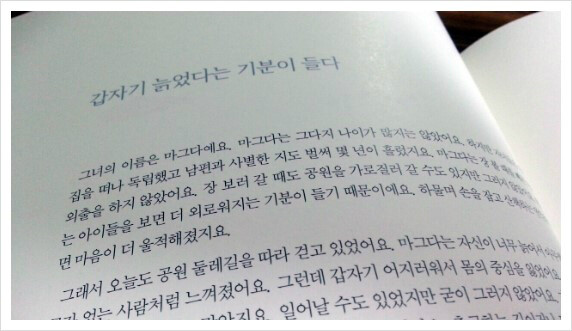 갑자기 늙었다는 기분이 들다
그녀의 이름은 마그다예요. 마그다는 그다지 나이가 많지는 않았어요. 하지만
집을 떠나 독립했고 남편과 사별한 지도 벌써 몇 년이 흘렀지요. 마그다는 장 볼 때를
외출을 하지 않았어요. 장 보러 갈 때도 공원을 가로질러 갈 수도 있지만 그러지 않았
는 아이들을 보면 더 외로워지는 기분이 들기 때문이에요. 하물며 손을 잡고
면 마음이 더 울적해졌지요.
그래서 오늘도 공원 둘레길을 따라 걷고 있었어요. 마그다는 자신이 너무 늙어서
없는 사람처럼 느껴졌어요. 그런데 갑자기 어지러워서 몸의 중심을 잃었어
일어날 수도 있었지만 굳이 그러지 않았어요.